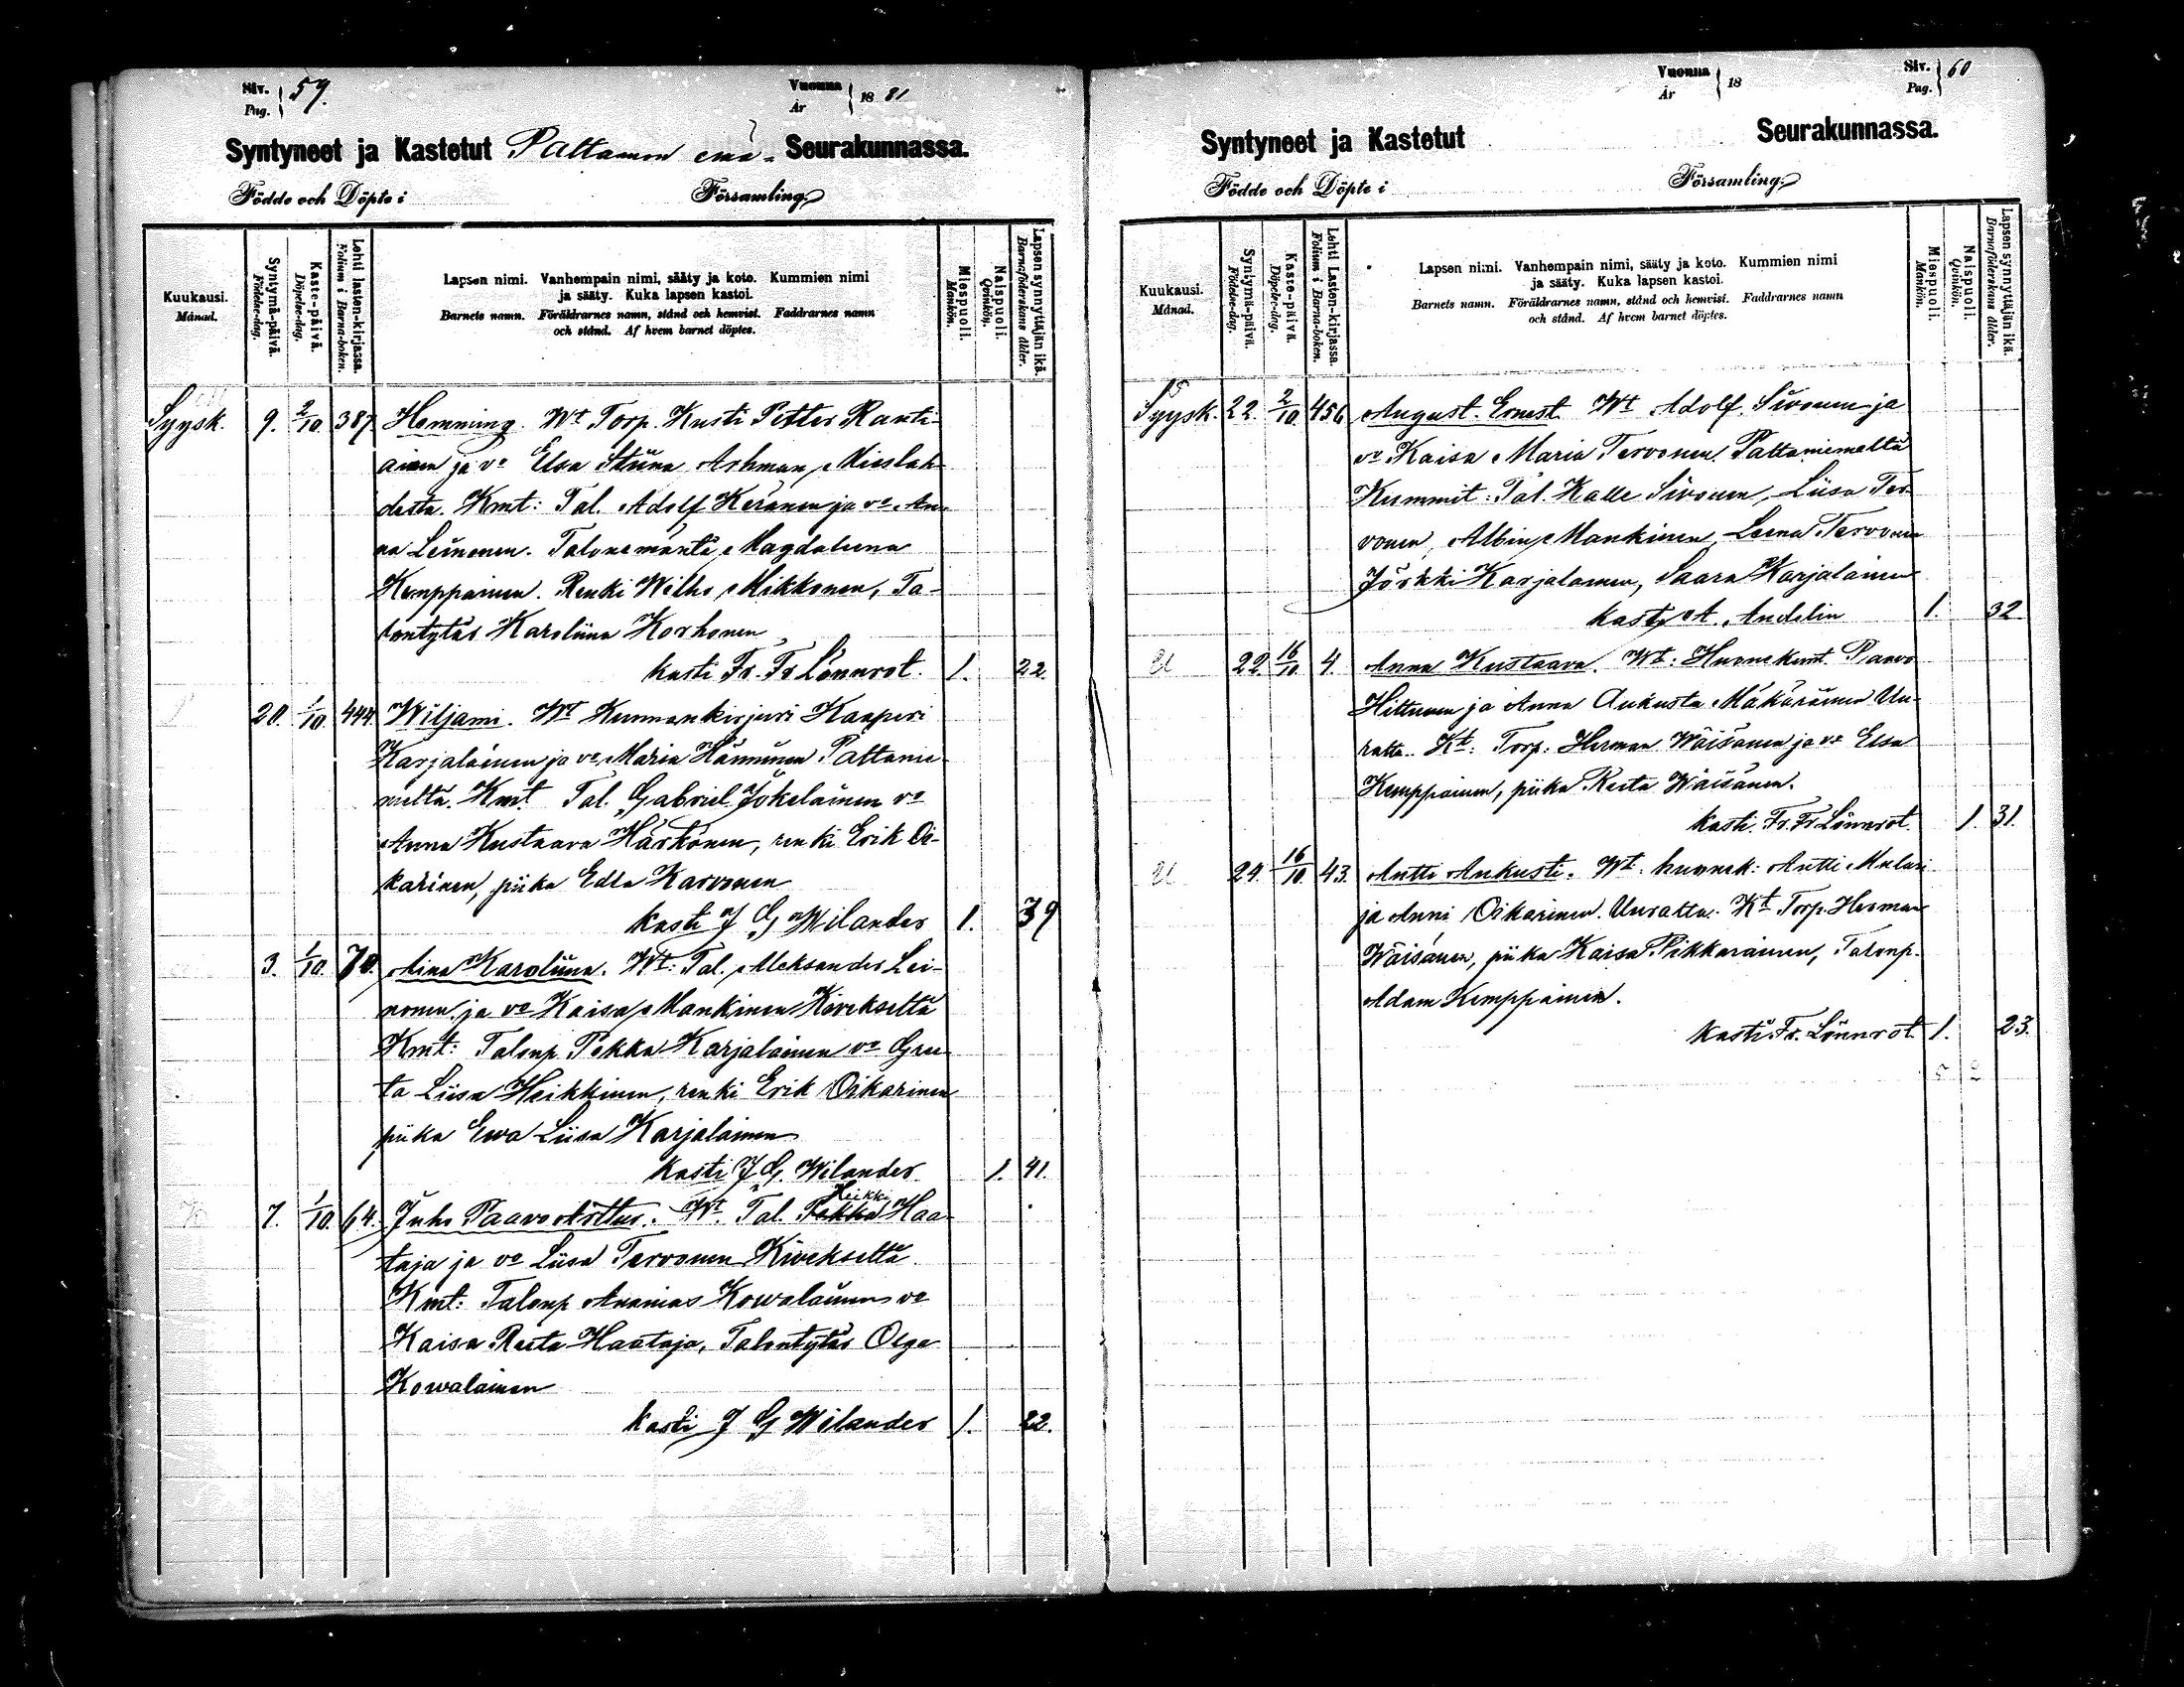 Siv. Pag. } 59.
Vuonna År } 18 81
Syntyneet ja Kastetut Paltamon emä- Seurakunnassa.
Födde och Döpte i Församling.
Kuukausi. Månad.
Syntymä-päivä. Födelse-dag.
Kaste-päivä. Döpelse-dag.
Lehti lasten-kirjassa. Folium i Barna-boken.
Lapsen nimi. Vanhempain nimi, sääty ja koto. Kummien nimi
ja sääty. Kuka lapsen kastoi.
Barnets namn. Föräldrarnes namn, stånd och hemvist. Faddrarnes namn
och stånd. Af hvem barnet döptes.
Miespuoli. Mankön.
Naispuoli. Qvinkön.
Lapsen synnyttäjän ikä. Barnaföderskans ålder.
Syysk. 9. 2/10. 387 Hemming. Wt Torp. Kusti Petter Ranti-
ainen ja vo Elsa Stiina Ahman, Mieslah-
desta. Kmt: Tal. Adolf Keränen ja vo An-
na Leinonen. Talonemäntä Magdaleena
Kemppainen. Renki Wilho Mikkonen, Ta-
lontytär Karoliina Korhonen
kasti Fr. Fr Lönnrot. 1. 22.
20. 1/10. 444 Wiljami. Wt Kunnankirjuri Kaaperi
Karjalainen ja vo Maria Hänninen Paltanie-
meltä. Kmt Tal. Gabriel Jokelainen vo
Anna Kustaava Härkönen, renki Erik Oi-
karinen, piika Edla Karvonen
kasti J G Wilander 1. 39
3. 1/10. 70. Aina Karoliina. Wt: Tal. Aleksander Lei-
nonen ja vo Kaisa Mankinen Kivekseltä
Kmt: Talonp. Pekka Karjalainen vo Gree-
ta Liisa Heikkinen, renki Erik Oikarinen
piika Ewa Liisa Karjalainen
kasti J G. Wilander 1. 41.
Heikki
7. 1/10. 64. Juho Paavo Arttur. Wt. Tal. Pekka Haa-
taja ja vo Liisa Tervonen Kivekseltä.
Kmt: Talonp Ananias Kowalainen vo
Kaisa Reeta Haataja, Talontytär Olga
Kowalainen
kasti J G Wilander 1. 22.
Vuonna År } 18
Siv. Pag. } 60
Syntyneet ja Kastetut Seurakunnassa.
Födde och Döpte i Församling.
Kuukausi. Månad.
Syntymä-päivä. Födelse-dag.
Kaste-päivä. Döpelse-dag.
Lehti Lasten-kirjassa. Folium i Barna-boken.
Lapsen nimi. Vanhempain nimi, sääty ja koto. Kummien nimi
ja sääty. Kuka lapsen kastoi.
Barnets namn. Föräldrarnes namn, stånd och hemvist. Faddrarnes namn
och stånd. Af hvem barnet döptes.
Miespuoli. Mankön.
Naispuoli. Qvinkön.
Lapsen synnyttäjän ikä. Barnaföderskans ålder.
Syysk. 22. 2/10. 456 August Ernest Wt Adolf Sivonen ja
vo Kaisa Maria Tervonen Paltaniemeltä
Kummit: Tal. Kalle Sivonen, Liisa Ter-
vonen, Albin Mankinen, Leena Tervonen
Jörkki Karjalainen, Saara Karjalainen
kast. A. Andelin 1. 32
22. 16/10. 4. Anna Kustaava. Wt: Huonekmt. Paavo
Hiltunen ja Anna Aukusta Mäkäräinen Uu-
ralta. Kt: Torp: Herman Wäisänen ja vo Elsa
Kemppainen, piika Reeta Wäisänen.
kasti. Fr. Fr Lönnrot. 1. 31.
24. 16/10. 43. Antti Aukusti. Wt: huonek: Antti Mulari
ja Anni Oikarinen. Uuralta. Kt Torp. Herman
Wäisänen, piika Kaisa Pikkarainen, Talonp.
Adam Kemppainen.
kasti Fr. Lönnrot 1. 23.
5 2